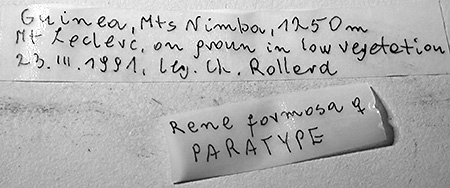 Guinea, Mts Nimba, 1250m
Mt Leclerc, on groun in low vegetation
23.III.1991, leg. Ch. Rollerd
Rene formosa ♀
PARATYPE